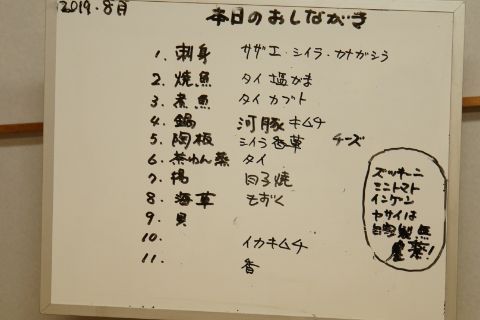 2019.8月
本日のおしながき
1. 刺身 サザエ・シイラ・カナガシラ
2. 焼魚 タイ塩がま
3. 煮魚 タイカブト
4. 鍋 河豚キムチ
5. 陶板 シイラ香草 チーズ
6. 茶わん蒸 タイ
7. 揚
8. 海草 もずく
9. 貝
10. イカキムチ
11. 香
ズッキーニ
ミニトマト
インゲン
ヤサイは
自家製無
農薬!